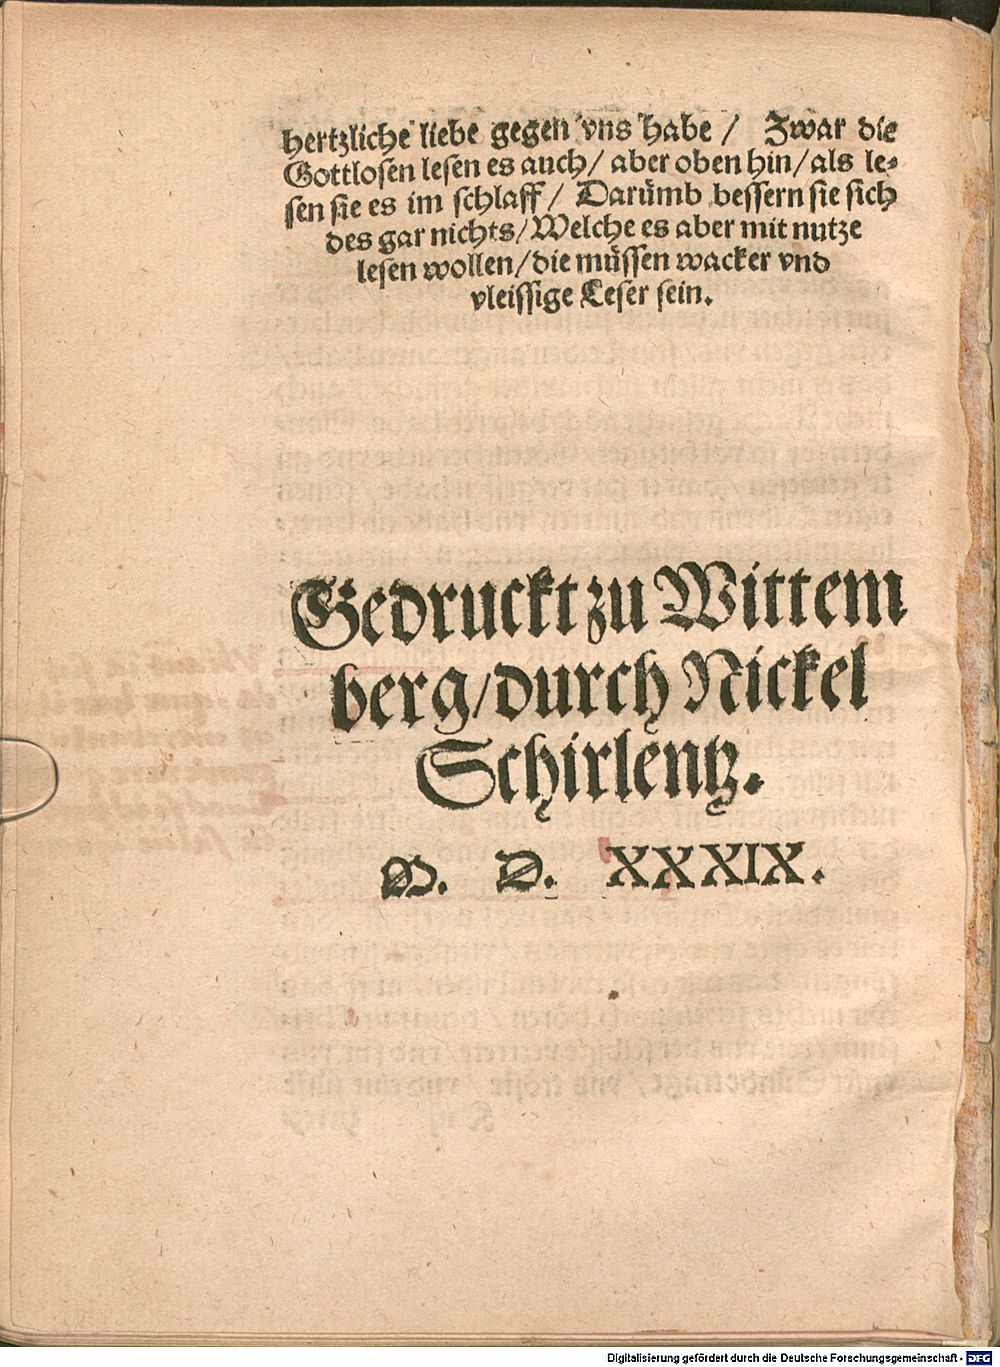 hertzliche liebe gegen vns habe / Zwar die
Gottlosen lesen es auch / aber oben hin / als le⸗
sen sie es im schlaff / Darümb bessern sie sich
des gar nichts / Welche es aber mit nutze
lesen wollen / die müssen wacker vnd
vleissige Leser sein.
Gedruckt zu Wittem
berg / durch Nickel
Schirlentz.
M. D. XXXIX.
Digitalisierung gefördert durch die Deutsche Forschungsgemeinschaft - DFG